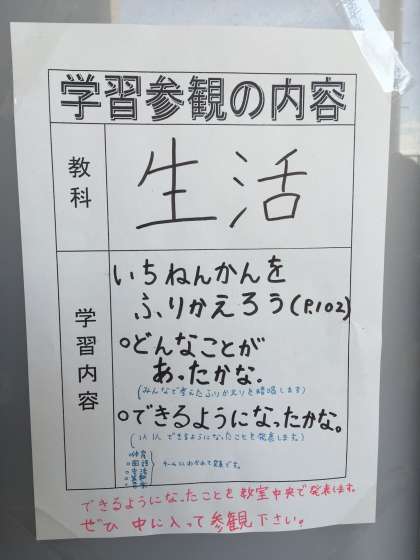 学習参観の内容
教科
生活
学習内容
いちねんかんを
ふりかえろう(P.102)
○どんなことが
あったかな。
(みんなで考えたふりかえりを暗唱します)
○できるようになったかな。
(1人1人できるようになったことを発表します。)
○体育
○国語
○生活
チームにわかれて発表です。
できるようになったことを教室中央で発表します。
ぜひ中に入って参観下さい。